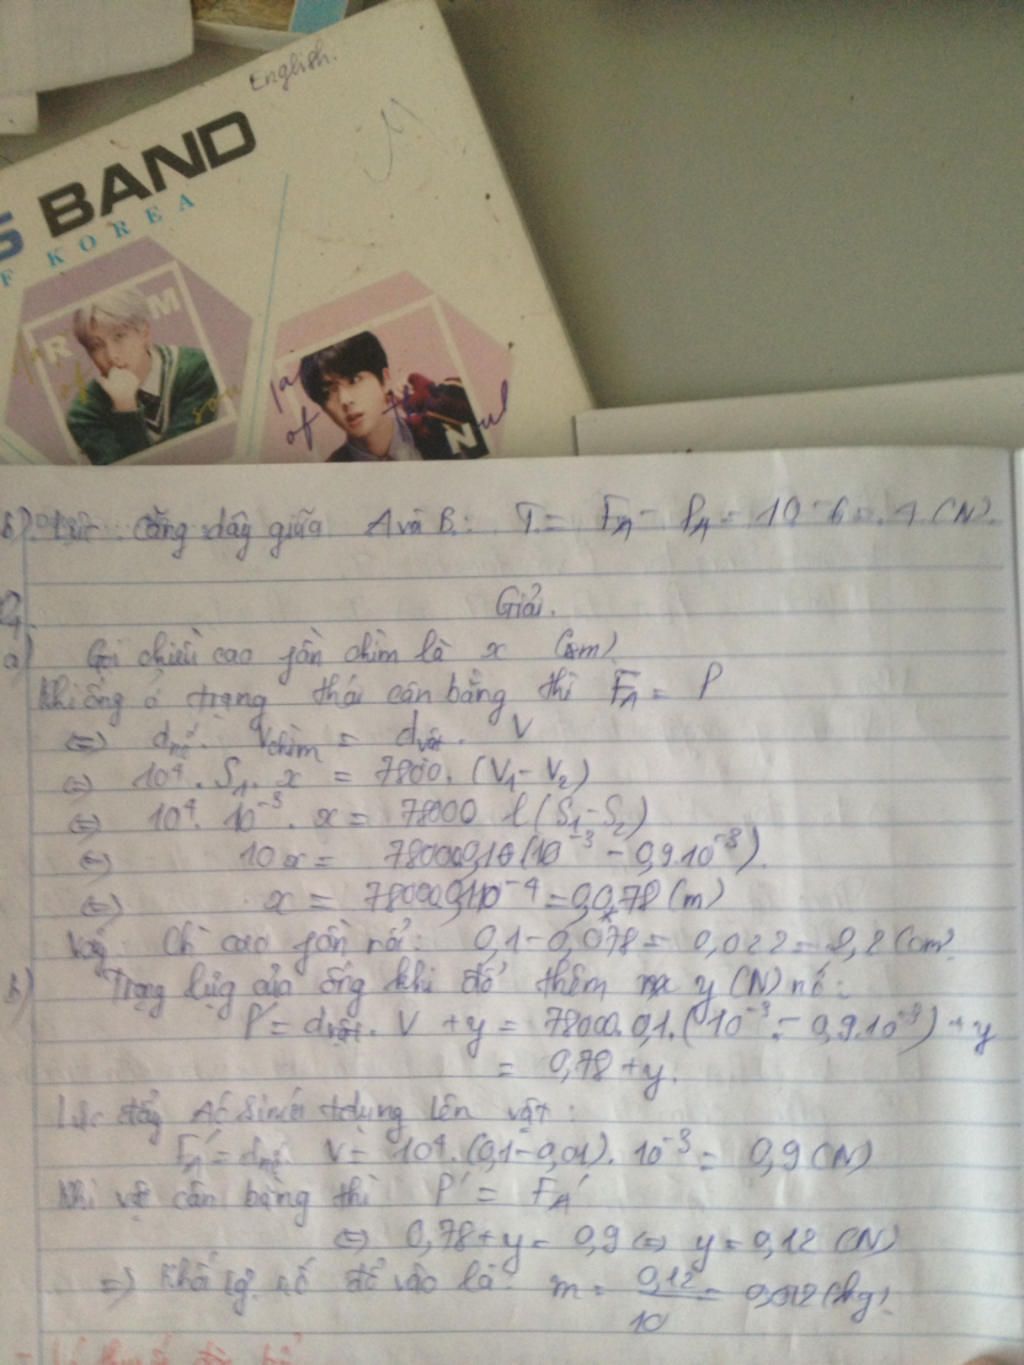 English.
S BAND
F KOREA
R M
of
soul
N
of the soul
b) Lực căng dây giữa A và B: T = F_A - P_A = 10 - 6 = 4 (N).
Giải.
a) Gọi chiều cao phần chìm là x (m)
Khi ống ở trạng thái cân bằng thì F_A = P
<=> d_nc. V_chìm = d_vật. V
<=> 10⁴. S₁. x = 7800. (V₁ - V₂)
<=> 10⁴. 10⁻³. x = 78000 l (S₁ - S₂)
<=> 10x = 78000.0,1 (10⁻³ - 0,9.10⁻³).
<=> x = 78000.0,1.10⁻⁴ = 0,078 (m)
Vậy Ch` cao phần nổi: 0,1 - 0,078 = 0,022 = 2,2 (cm).
b) Trọng lượng của ống khi đổ thêm y (N) nc:
P' = d_vật. V + y = 78000.0,1.(10⁻³ - 0,9.10⁻³) + y
= 0,78 + y.
Lực đẩy Ác Simét tdụng lên vật:
F_A' = d_nc. V = 10⁴.(0,1 - 0,01). 10⁻³ = 0,9 (N)
Khi vật cân bằng thì P' = F_A'
<=> 0,78 + y = 0,9 <=> y = 0,12 (N)
=> Khối lg. nc đổ vào là: m = 0,12/10 = 0,012 (kg).